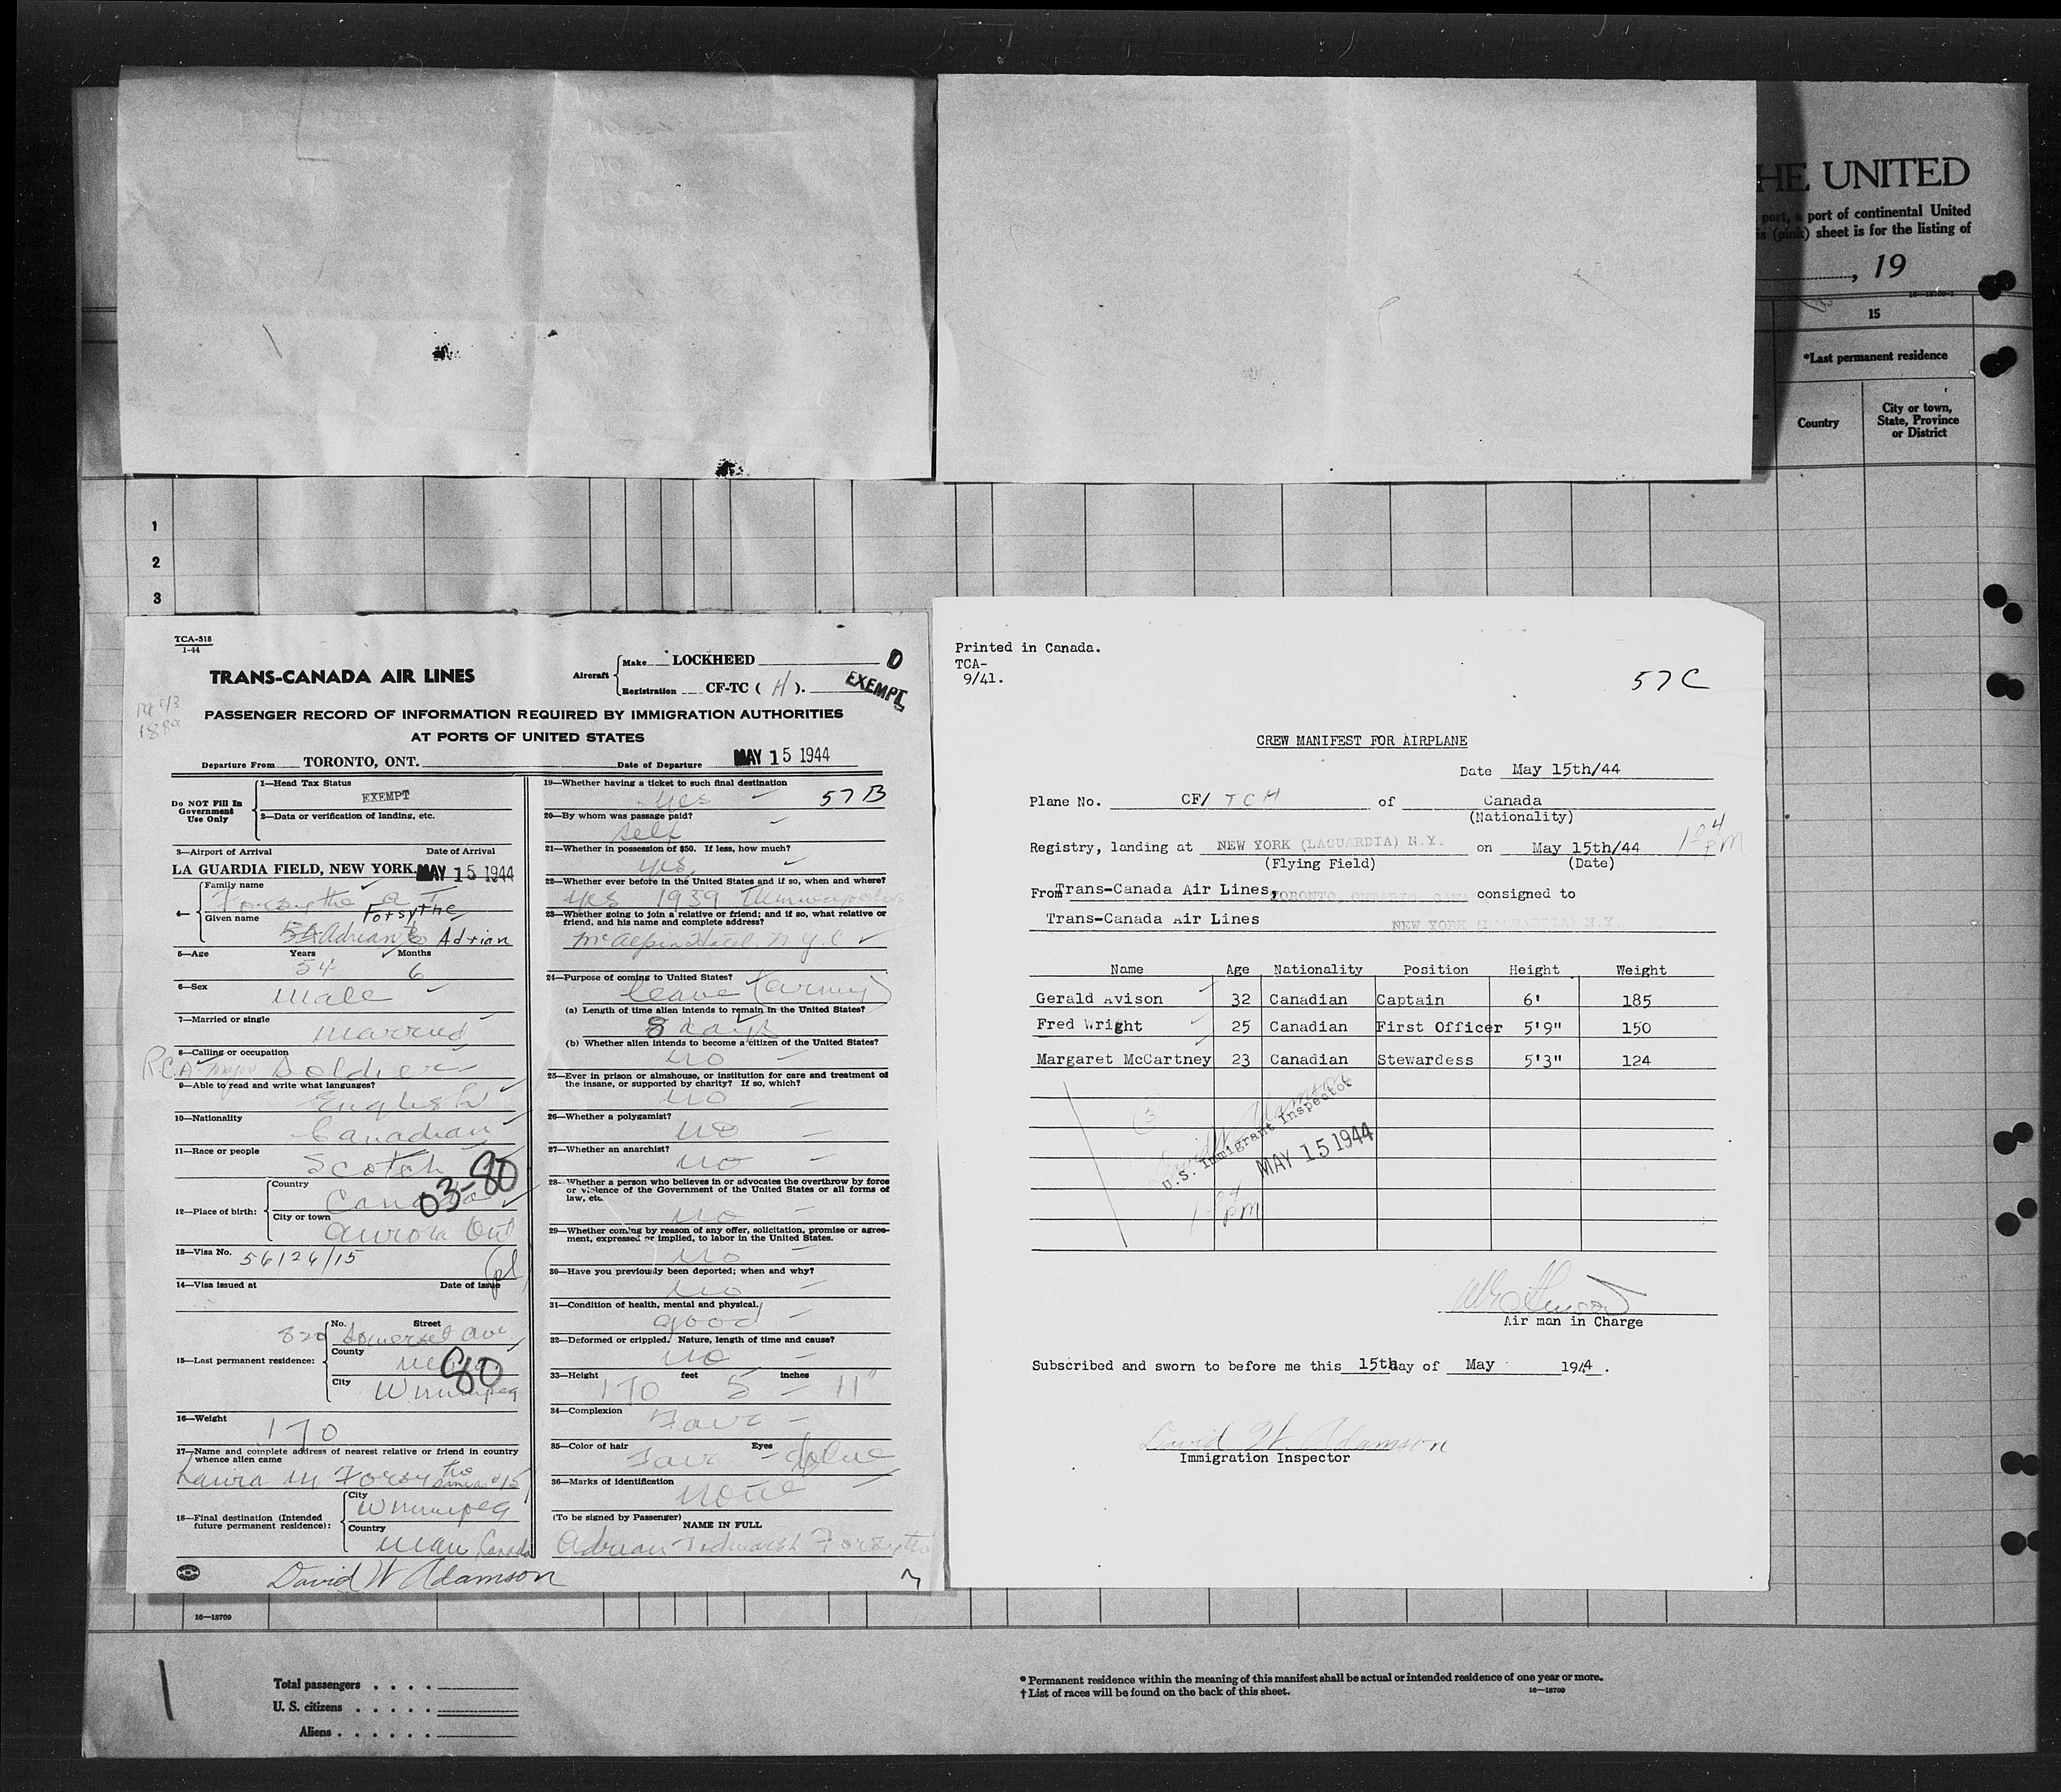 HE UNITED
port, a port of continental United
is (pink) sheet is for the listing of
, 19
15
*Last permanent residence
Country
City or town,
State, Province
or District
1
2
3
TCA-518
1-44
TRANS-CANADA AIR LINES
Aircraft
Make LOCKHEED
Registration CF-TC ( H ).
EXEMPT
PASSENGER RECORD OF INFORMATION REQUIRED BY IMMIGRATION AUTHORITIES
AT PORTS OF UNITED STATES
Departure From TORONTO, ONT. Date of Departure MAY 15 1944
Do NOT Fill In
Government
Use Only
1—Head Tax Status
EXEMPT
2—Data or verification of landing, etc.
3—Airport of Arrival Date of Arrival
LA GUARDIA FIELD, NEW YORK. MAY 15 1944
4—
Family name
Forsythe A T
Forsythe
Given name
Adrian
Adrian
5—Age Years Months
54 6
6—Sex
Male
7—Married or single
Married
8—Calling or occupation
R.C.A. Major Soldier
9—Able to read and write what languages?
English
10—Nationality
Canadian
11—Race or people
Scotch
03-80
12—Place of birth:
Country
Canada
City or town
Aurora Ont
13—Visa No. 56126/15
14—Visa issued at Date of issue
15—Last permanent residence:
No. Street
820 Somerset Ave
County
80
City
Winnipeg
16—Weight
170
17—Name and complete address of nearest relative or friend in country
whence alien came
Laura M Forsythe Same as #15
18—Final destination (Intended
future permanent residence):
City
Winnipeg
Country
Man Canada
David W Adamson
19—Whether having a ticket to such final destination
yes 57 B
20—By whom was passage paid?
self
21—Whether in possession of $50. If less, how much?
yes
22—Whether ever before in the United States and if so, when and where?
yes 1939 Minneapolis
23—Whether going to join a relative or friend; and if so, what relative or
friend, and his name and complete address?
McAlpin Hotel N.Y.C
24—Purpose of coming to United States?
leave (army)
(a) Length of time alien intends to remain in the United States?
8 days
(b) Whether alien intends to become a citizen of the United States?
No
25—Ever in prison or almshouse, or institution for care and treatment of
the insane, or supported by charity? If so, which?
No
26—Whether a polygamist?
No
27—Whether an anarchist?
No
28—Whether a person who believes in or advocates the overthrow by force
or violence of the Government of the United States or all forms of
law, etc.
No
29—Whether coming by reason of any offer, solicitation, promise or agree-
ment, expressed or implied, to labor in the United States.
No
30—Have you previously been deported; when and why?
No
31—Condition of health, mental and physical.
good
32—Deformed or crippled. Nature, length of time and cause?
No
33—Height feet inches
170 5 - 11"
34—Complexion
Fair
35—Color of hair Eyes
Fair - Blue
36—Marks of identification
None
(To be signed by Passenger) NAME IN FULL
Adrian Tidmarsh Forsythe
Printed in Canada.
TCA-
9/41.
57 C
CREW MANIFEST FOR AIRPLANE
Date May 15th/44
Plane No. CF/ TCH of Canada
(Nationality)
Registry, landing at NEW YORK (LAGUARDIA) N.Y. on May 15th/44 1 04 PM
(Flying Field) (Date)
From Trans-Canada Air Lines, TORONTO, ONTARIO, CANA consigned to
Trans-Canada Air Lines NEW YORK (LAGUARDIA) N.Y.
Name Age Nationality Position Height Weight
Gerald Avison 32 Canadian Captain 6' 185
Fred Wright 25 Canadian First Officer 5'9" 150
Margaret McCartney 23 Canadian Stewardess 5'3" 124
3
David W Adamson
U.S. Immigrant Inspector
MAY 15 1944
1 04 PM
Air man in Charge
Subscribed and sworn to before me this 15th day of May 1944.
David W. Adamson
Immigration Inspector
16—18709
Total passengers . . . .
U. S. citizens . . . . .
Aliens . . . . . .
* Permanent residence within the meaning of this manifest shall be actual or intended residence of one year or more.
† List of races will be found on the back of this sheet. 16—18709